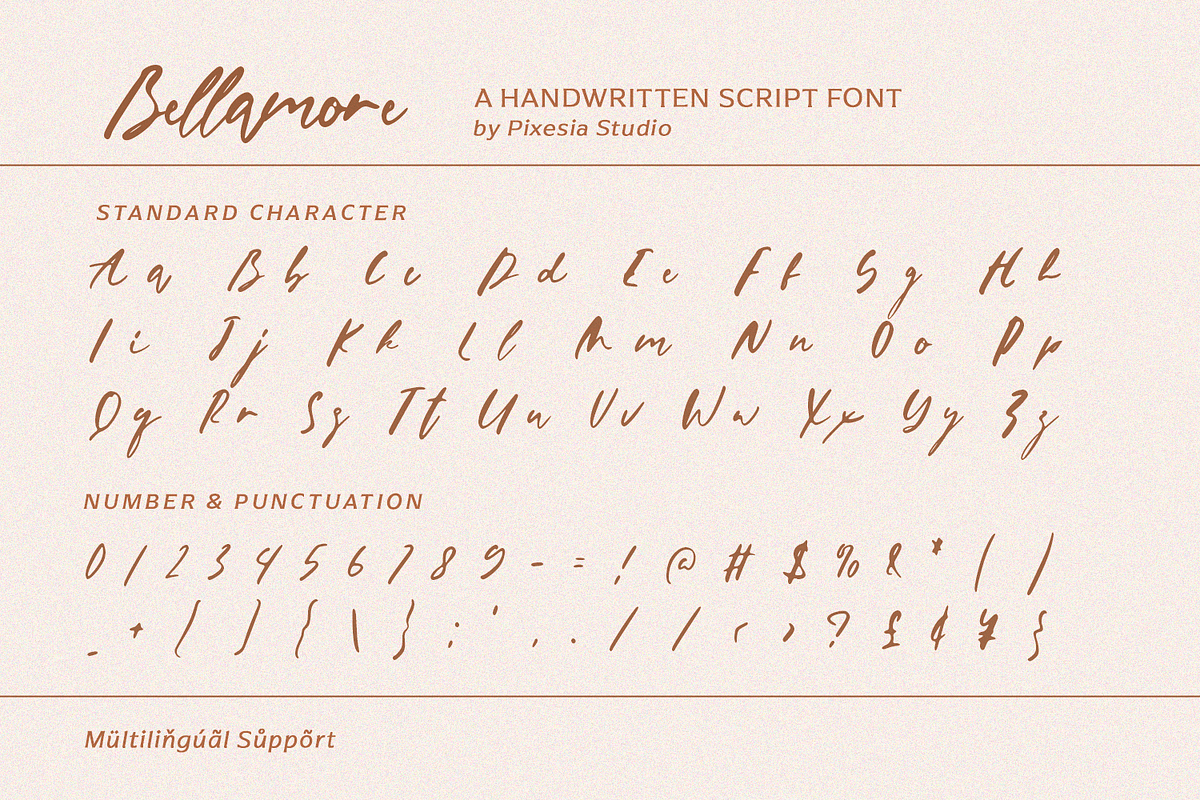 Bellamore
A HANDWRITTEN SCRIPT FONT
by Pixesia Studio
STANDARD CHARACTER
A a B b C c D d E e F f G g H h
I i J j K k L l M m N n O o P p
Q q R r S s T t U u V v W w X x Y y Z z
NUMBER & PUNCTUATION
0 1 2 3 4 5 6 7 8 9 - = ! @ # $ % & * ( )
_ + [ ] { \ } ; ' , . / / < > ? £ ¢ ¥ {
Mültiliňgúãl Sůppõrt